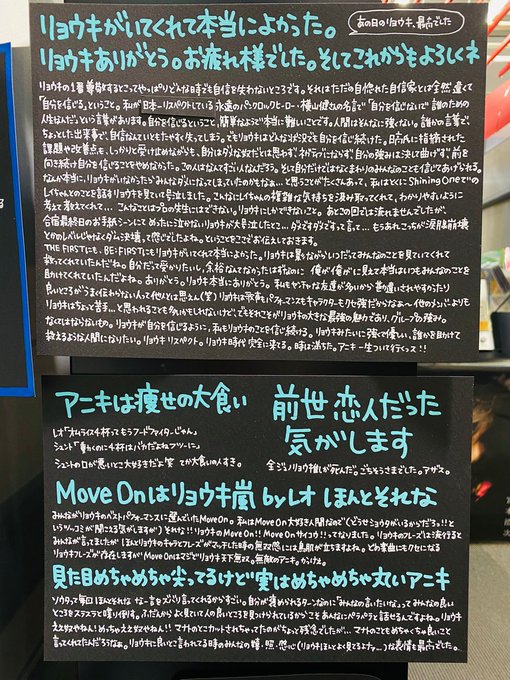 リョウキがいてくれて本当によかった。
あの日のリョウキ、最高でした
リョウキありがとう。お疲れ様でした。そしてこれからもよろしくネ
リョウキの1番尊敬するとこってやっぱりどんな時でも自信を失わないところです。それはただの自惚れた自信家とは全然違くて
「自分を信じる」ということ。私が日本一リスペクトしている永遠のパンクロックヒーロー・横山健さんの名言で"自分を信じないで誰のための
人生なんだ"という言葉があります。自分を信じるということ、簡単なようで本当に難しいことです。人間はそんなに強くない。誰かの言葉で、
ちょっとした出来事で、自信なんていとたやすく失ってしまう。でもリョウキはどんな状況でも自分を信じ続けた。日高氏に指摘された
課題や改善点も、しっかりと受け止めながらも、自分はダメな奴だとは思わず、ネガティブにならず、自分の強みは決して曲げず、前を
向き続け自分を信じることをやめなかった。この人はなんてすごい人なんだろう。そして自分だけではなくまわりのみんなのことも信じてあげられる。
なんか本当に、リョウキがいなかったらみんなダメになってしまっていたのかもなぁ…と思うことがたくさんあって、私はとくにShining Oneでの
レイちゃんとのことを話すリョウキを見ていて号泣しました。こんなにレイちゃんの複雑な気持ちを汲み取ってくれて、わかりやすいように
考えて教えてくれて…こんなことはプロの先生にはできない。リョウキにしかできないこと。あとこの回では流れませんでしたが、
合宿最終日のお手紙シーンにてめったに泣かないリョウキが大号泣したとこ…ダメですダメですって言って…もうあれこっちが涙腺崩壊
とかのレベルじゃなくダム決壊って感じでしたよね。ということをここでお伝えしておきます。
THE FIRSTにも、BE:FIRSTにもリョウキがいてくれて本当によかった。リョウキは異がなからいつだってみんなのことを見ていてくれて
救ってくれていたんだよね。自分だって受かりたいし、余裕なんてなかったはずなのに 俺が俺がに見えて本当はいつもみんなのことを
助けてくれていたんだよね。ありがとう。リョウキ本当にありがとう。私もヤンチャな友達が多いから勘違いされやすかったり
良いところがうまく伝わらない人って他人とは思えん(笑) リョウキは歌声もパフォーマンスもキャラクターもクセ強だからなぁ〜他のメンバーよりも
リョウキはちょっと苦手…と思われることも多いかもしれないけど、でもそれこそがリョウキの大きな最強の魅力であり、グループの強み。
なくてはならないもの。リョウキが自分を信じるように、私もリョウキのことを信じ続ける。リョウキみたいに強くて優しい、誰かを助けて
救えるような人間になりたい。リョウキリスペクト。リョウキ時代完全に来てる。時は満ちた。アニキ一生ついて行くっス!!
アニキは痩せの大食い
レオ「オムライス4杯ってもうフードファイターじゃん」
シュント「動くのに4杯はバカだよねフツーに」
シュントの口が悪いとこ大好きだよ笑 てか大食いの人すき。
前世恋人だった
気がします
全ジュノリョウ推しが死んだ。ごちそうさまでした。アザス。
Move Onはリョウキ嵐 byレオ ほんとそれな
みんながリョウキのベストパフォーマンスに選んでいたMove On。私はMove On大好き人間なので(どうせショウタがいるからだろっ!!と
いうツッコミが聞こえる気がしますが)それな!!リョウキのMove On!! Move Onサイコウ!!ってなりました。リョウキのフレーズは流行ると
みんなが言ってましたが ほんとリョウキのキャラとフレーズがマッチした時の無双感には鳥肌が立ちますよね。どの審査にもクセになる
リョウキフレーズが存在しますがMove Onはマジでリョウキ天下無双。無敵のアニキ。かっけぇ。
見た目めちゃめちゃ尖ってるけど実はめちゃめちゃ丸いアニキ
ソウタって毎回ほんとそれな な一言をズバリ言ってくれるからすごい。自分が褒められるターンなのに「みんなの言いたいな」ってみんなの良い
ところをスラスラと喋り倒す。ふだんからよく見ていて人の良いところを見つけられているからこそあんなにペラペラと話せるんですよね。リョウキ
ええ奴やねん!めっちゃええ奴やねん!! マナトのとこカットされちゃってたのがちょっと残念でしたが…マナトのこともめちゃくちゃ良いこと
言ってくれてたんだろうなぁ。リョウキに良いこと言われてる時のみんなの嬉・照・感・心(リョウキほんとよく見てるよナァ…)な表情も最高でした。